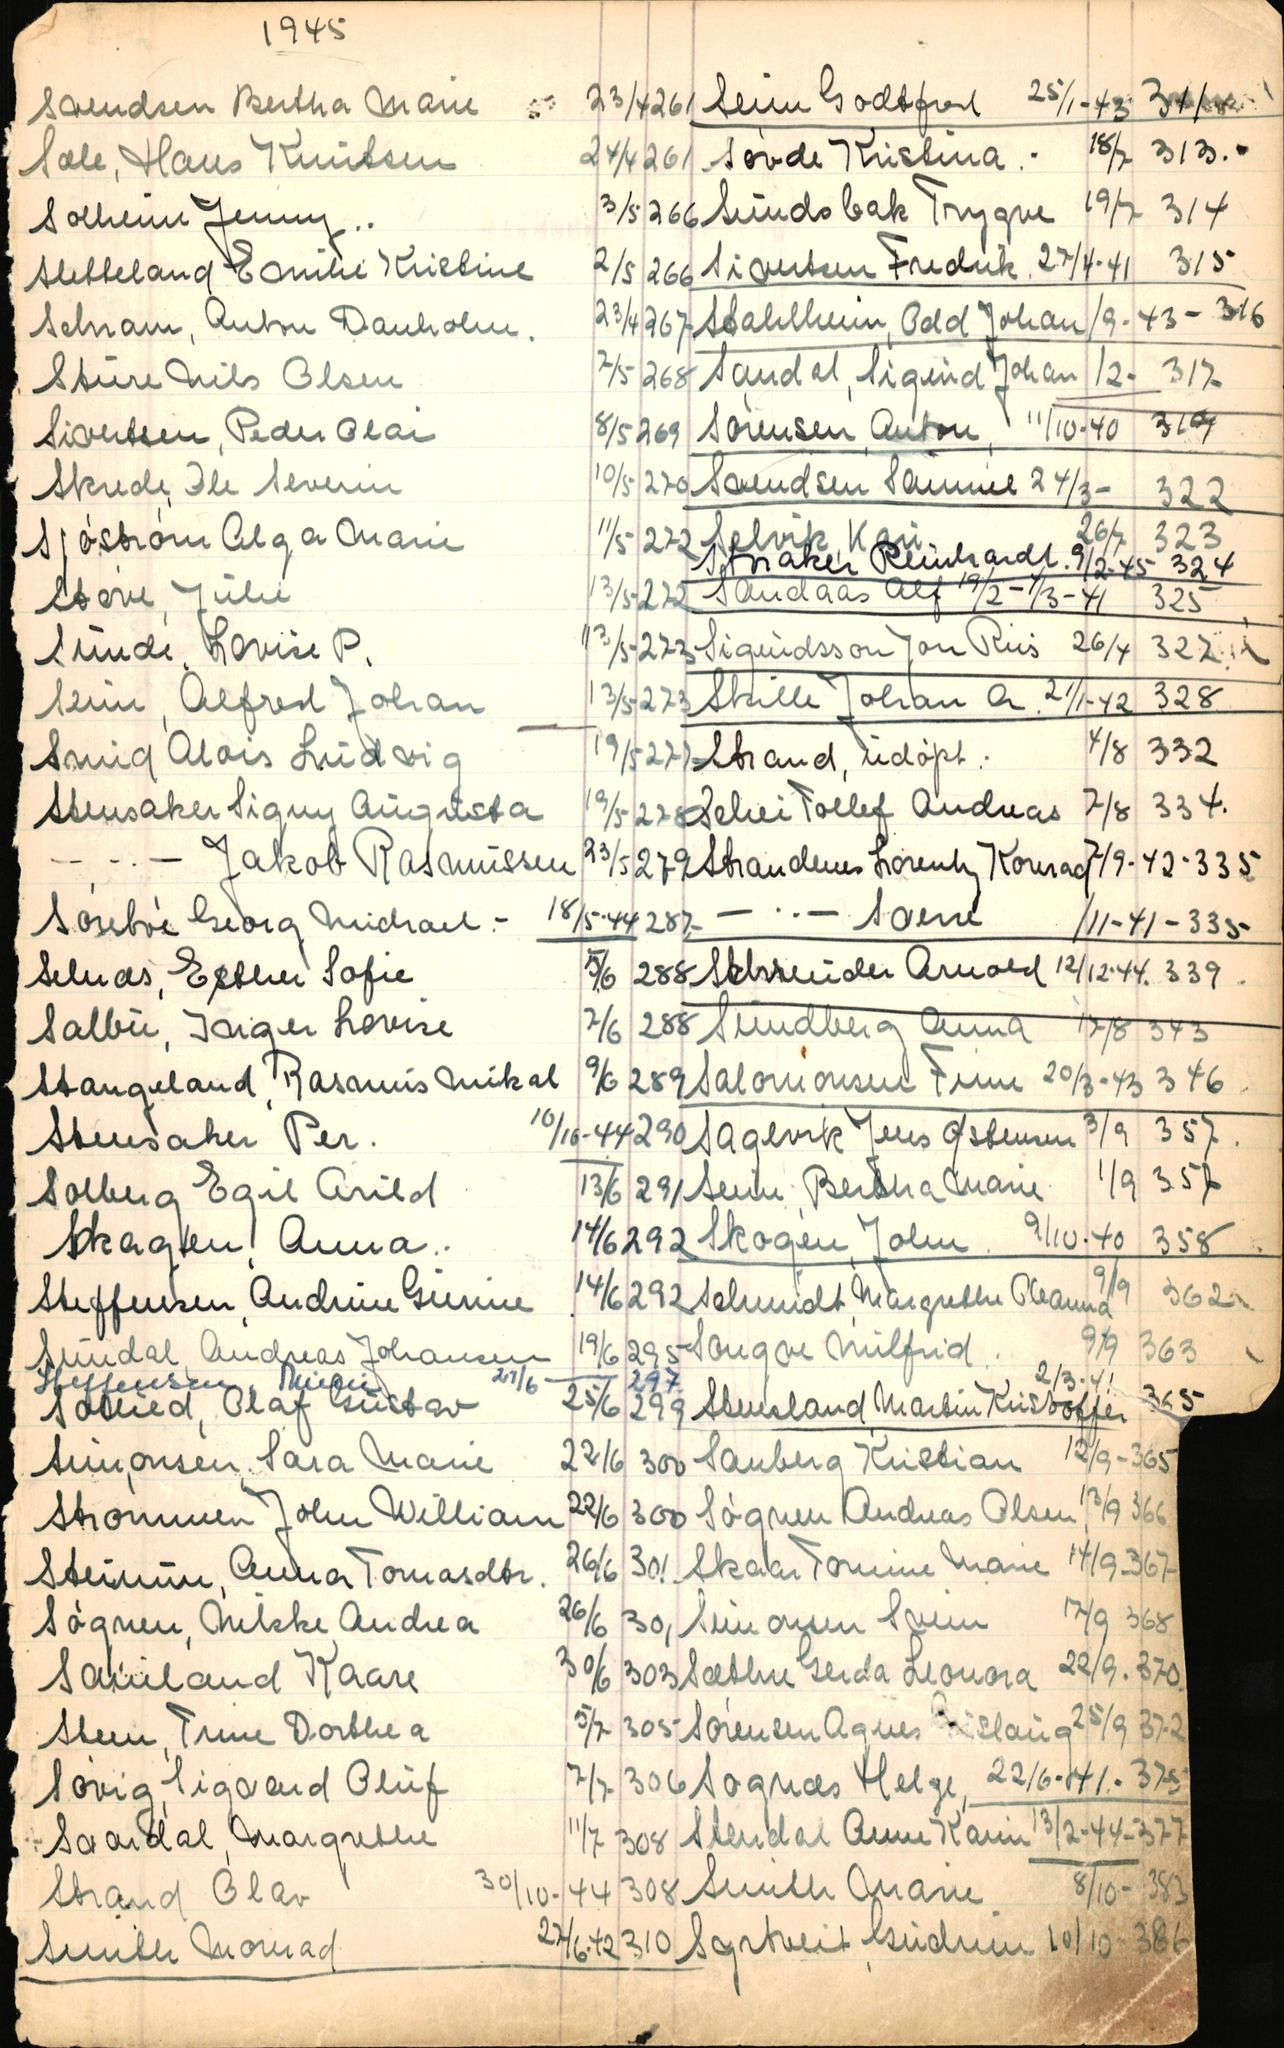 1945
Svendsen Bertha Marie 23/4 261
Sæle, Hans Knutsen 24/4 261
Solheim Jenny .. 3/5 266
Sletteland Emilie Kristine 2/5 266
Schram, Anton Danholm. 23/4 267
Sture Nils Olsen 7/5 268
Sivertsen, Peder Olai 8/5 269
Skrede, Ole Severin 10/5 270
Sjöström Olga Marie 11/5 272
Støve, Julie 13/5 272
Sunde, Lovise P. 13/5 273
Seim, Alfred Johan 13/5 273
Smig Alois Ludvig 19/5 277
Stensaker Signy Augusta 19/5 278
— · · — Jakob Rasmussen 23/5 279
Sørebø Georg Michael - 18/5-44 287
Selnes, Esther Sofie 5/6 288
Salbu, Inger Lovise 7/6 288
Stangeland, Rasmus Mikal 9/6 289
Stensaker Per. 10/10-44 290
Solberg Egil Arild 13/6 291
Skagen, Anna .. 14/6 292
Steffensen, Andrine Gurine 14/6 292
Sundal, Andreas Johansen 19/6 295
Steffensen, 21/6 297
Olaf Gustav 25/6 299
Simonsen, Sara Marie 22/6 300
Strømmen John William 22/6 300
Steinum, Anna Tomasdtr. 26/6 301
Søgnen, Milske Andrea 26/6 301
Sauland Kaare 30/6 303
Steen, Trine Dorthea 5/7 305
Søvig, Sigvard Oluf 7/7 306
Svardal, Margrethe 11/7 308
Strand Olav 30/10-44 308
Smith Monrad 27/6-42 310
Seim Godtfred 25/1-43 311
Søvde Kristina . - 18/7 313.-
Sundsbak Trygve 19/7 314
Sivertsen Fredrik. 27/4-41 315
Stahlheim, Odd Johan /9-43- 316
Sandal, Sigurd Johan /2- 317
Sørensen, Anton, 11/10-40 319
Svendsen Sammie 24/3- 322
Selvik, Kari 26/7 323
Straker Reinhardt. 9/2-45 324
Sandaas Alf 19/2-1/3-41 325
Sigurdsson Jon Rús 26/4 327
Skille Johan A. 21/1-42 328
Strand, udøpt. 4/8 332
Schei Tollef Andreas 7/8 334.
Strandenes Lorentz Konrad 7/9-42-335
— · · — Sverre /11-41-335
Schreuder Arnold 12/12-44. 339.
Sundberg Anna 17/8 343
Salomonsen Finn 20/3-43 346
Sagevik Jens Østensen 3/9 357.
Seim, Bertha Marie 1/9 357
Skogen, John. 9/10-40 358
Schmidt, Margrethe Oleanna 9/9 362
Songve Milfrid. 9/9 363
Stensland, Martin Kristoffer 2/3-41 365
Sanberg Kristian 12/9-365
Søgnen Andreas Olsen 13/9 366
Skaar Tomine Marie 14/9-367
Simonsen Svein 17/9 368
Sæthre Gerda Leonora 22/9. 370.
Sørensen Agnes Aslaug 25/9 372
Sognæs Helge, 22/6-41.-375
Stendal Anne Karin 13/2-44-377
Smith Marie 8/10- 383
Sortveit, Gudrun 10/10-386